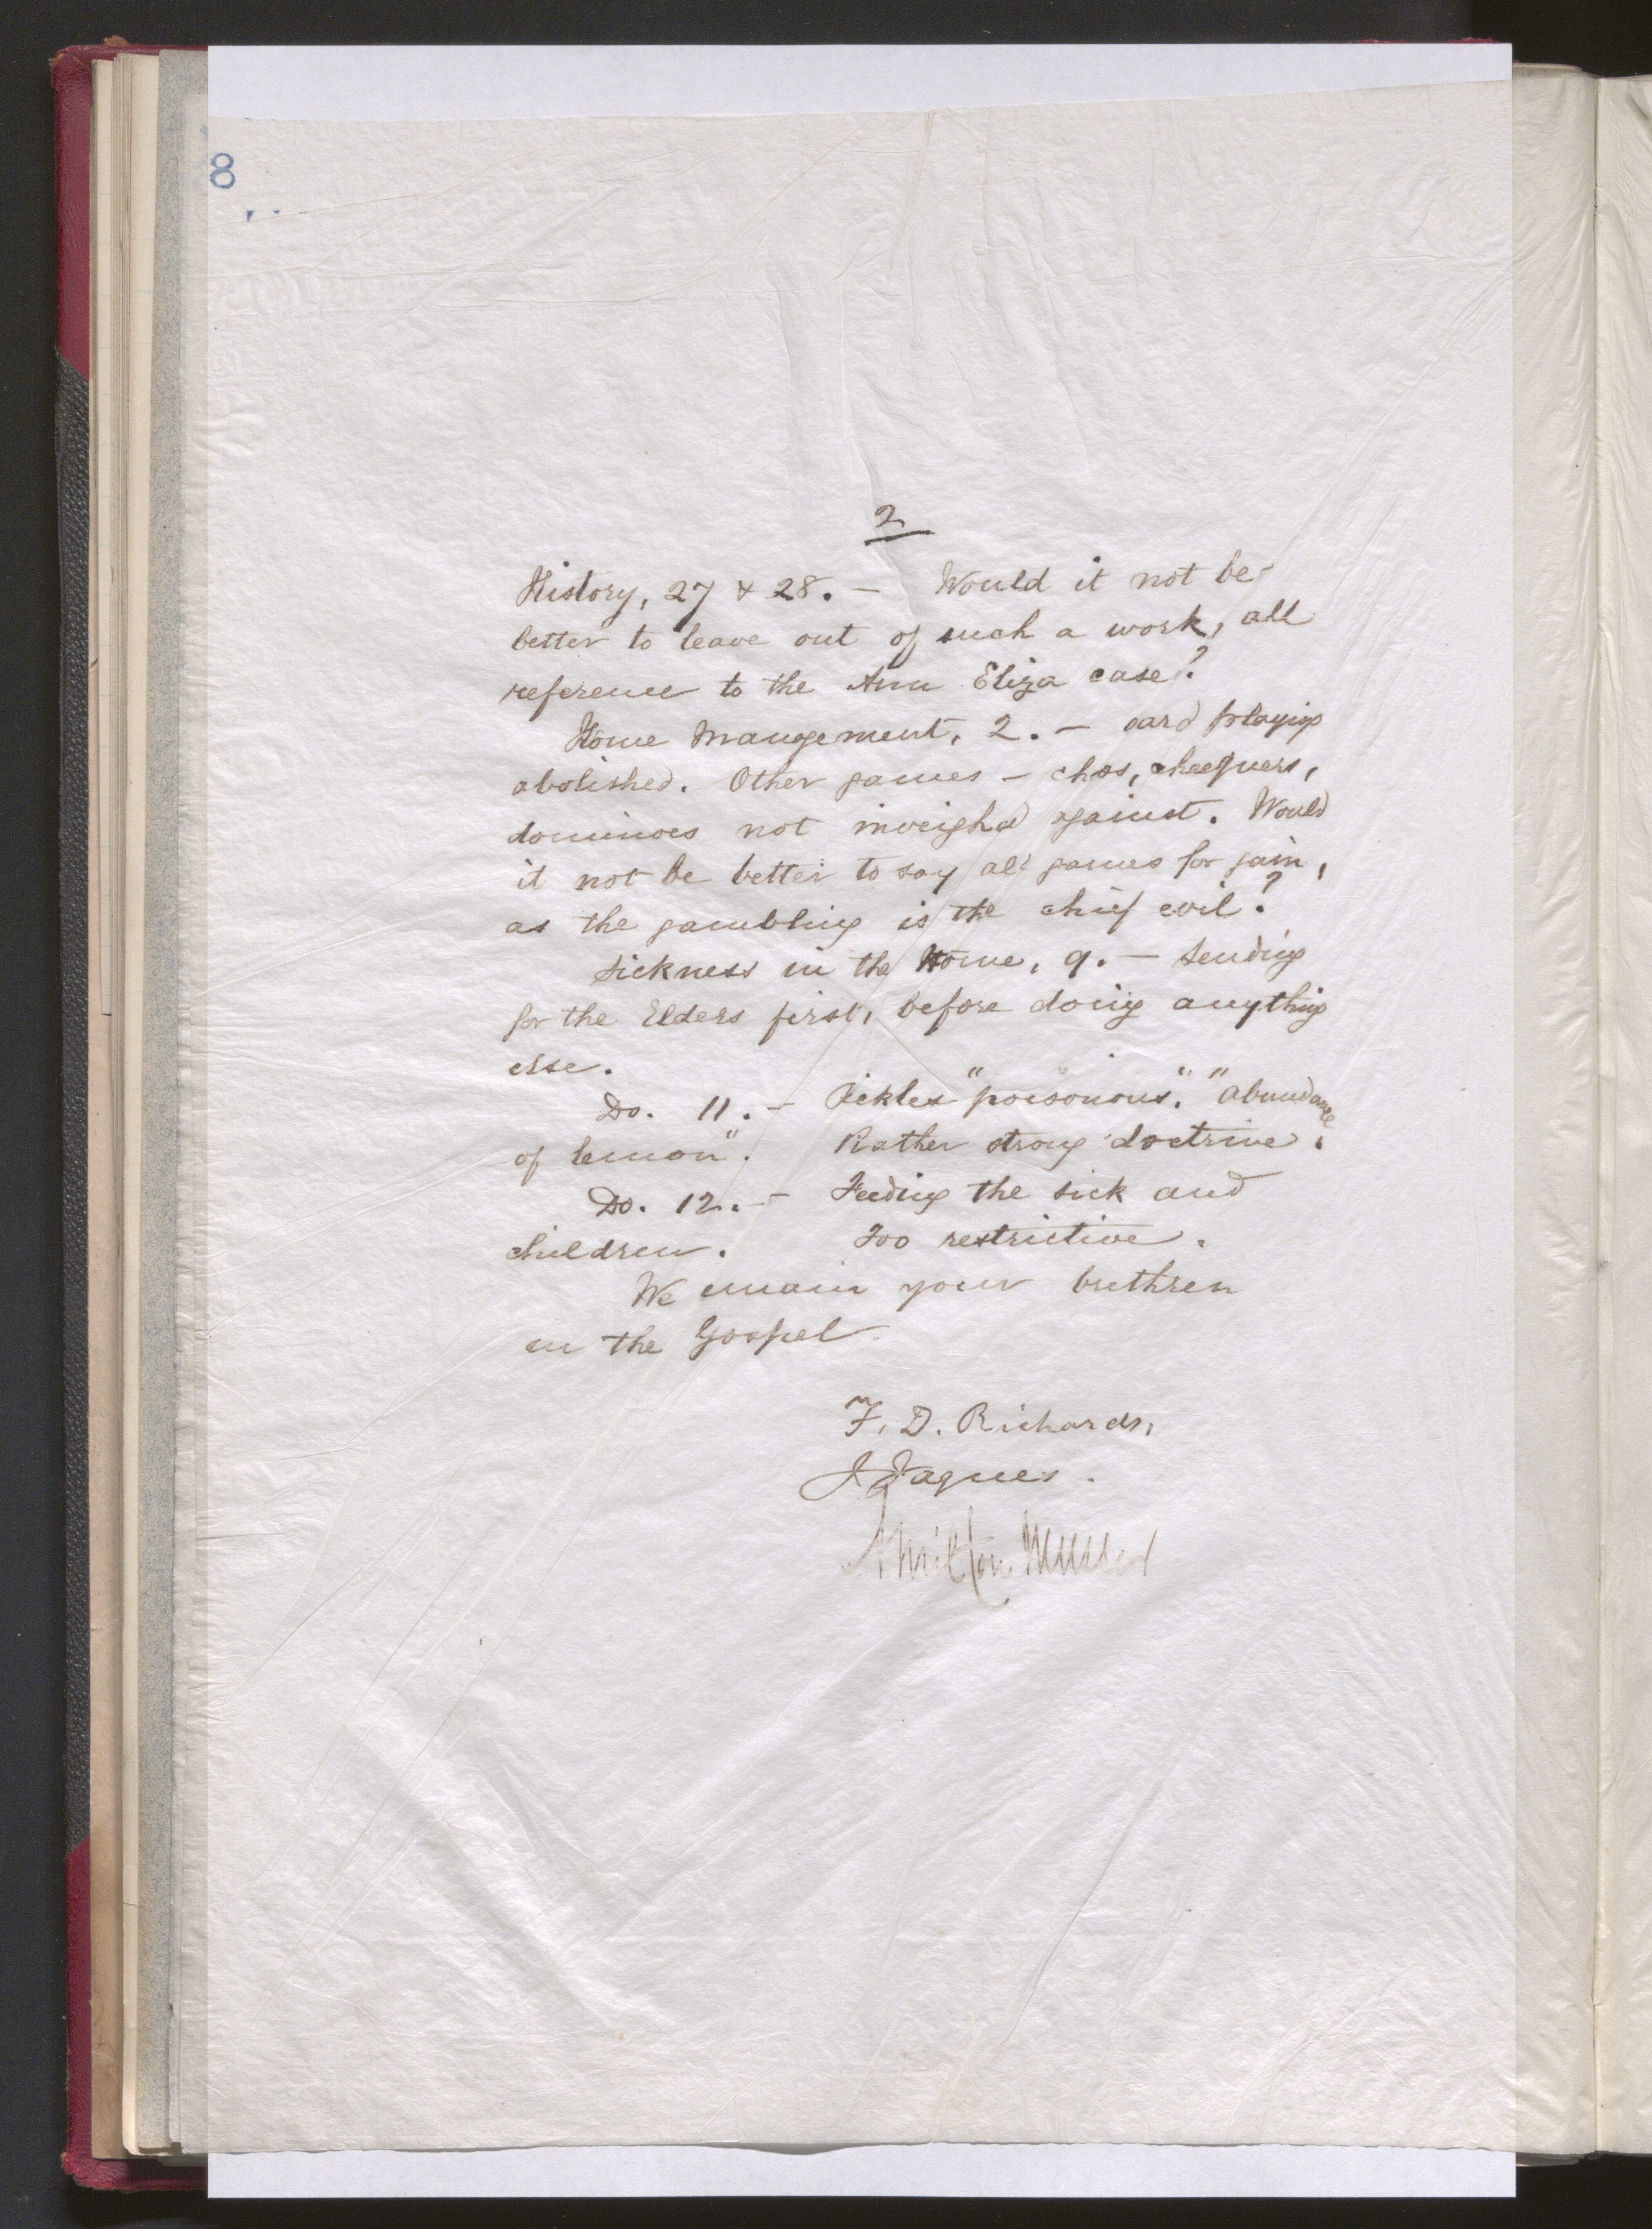 8
2
History, 27 & 28. — Would it not be
better to leave out of such a work, all
reference to the Ann Eliza case?
Home Mangement, 2. — card playing
abolished. Other games — chess, checquers,
dominoes not inveighed against. Would
it not be better to say all games for gain,
as the gambling is the chief evil?
Sickness in the Home, 9. — Sending
for the Elders first, before doing anything
else.
Do. 11. — Pickles "poisonous". "abundance
of lemon". Rather strong doctrine.
Do. 12. — Feeding the sick and
children. Too restrictive.
We remain your brethren
in the Gospel
F. D. Richards,
J Jaques.
A Milton Musser